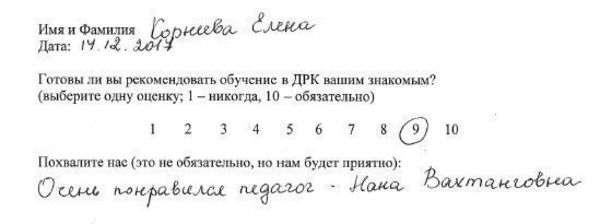 Имя и Фамилия Корнеева Елена
Дата: 14.12.2017
Готовы ли вы рекомендовать обучение в ДРК вашим знакомым?
(выберите одну оценку; 1 – никогда, 10 – обязательно)
1 2 3 4 5 6 7 8 9 10
Похвалите нас (это не обязательно, но нам будет приятно):
Очень понравился педагог - Нана Вахтанговна